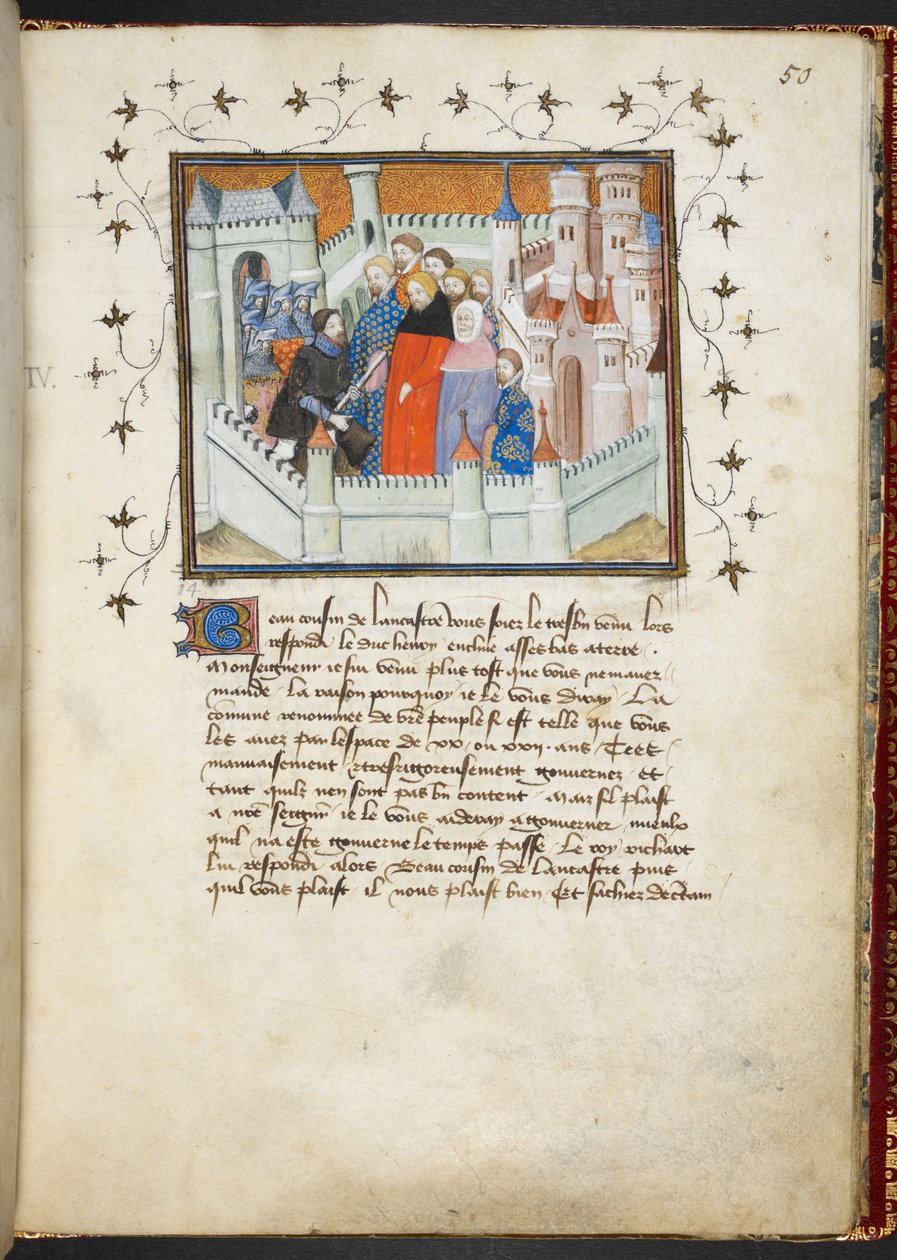 50
IV.
14
Beau cousin de lancastre vous soiez le tresbn venu lors
respondi le duc henry encline asses bas a terre .
Monseigneur ie sui venu plus tost que vous ne mauez
mande . la raison pourquoy ie le vous diray . La
cõmune renommee de vr̃e peuple si est telle que vous
les auez par lespace de xx . ou xxij . ans . Tres
mauuaisement . et tresrigoreusement gouuernez . et
tant quilz nen sont pas bn content . Mais sil plaist
a nr̃e seignr̃ . ie le vous aideray a gouuerner . mieulx
quil na este gouuerne le temps passe . Le roy richart
lui respondi alors . Beau cousin de lancastre puis
quil vous plaist . il nous plaist bien . Et sachiez de c̃tain